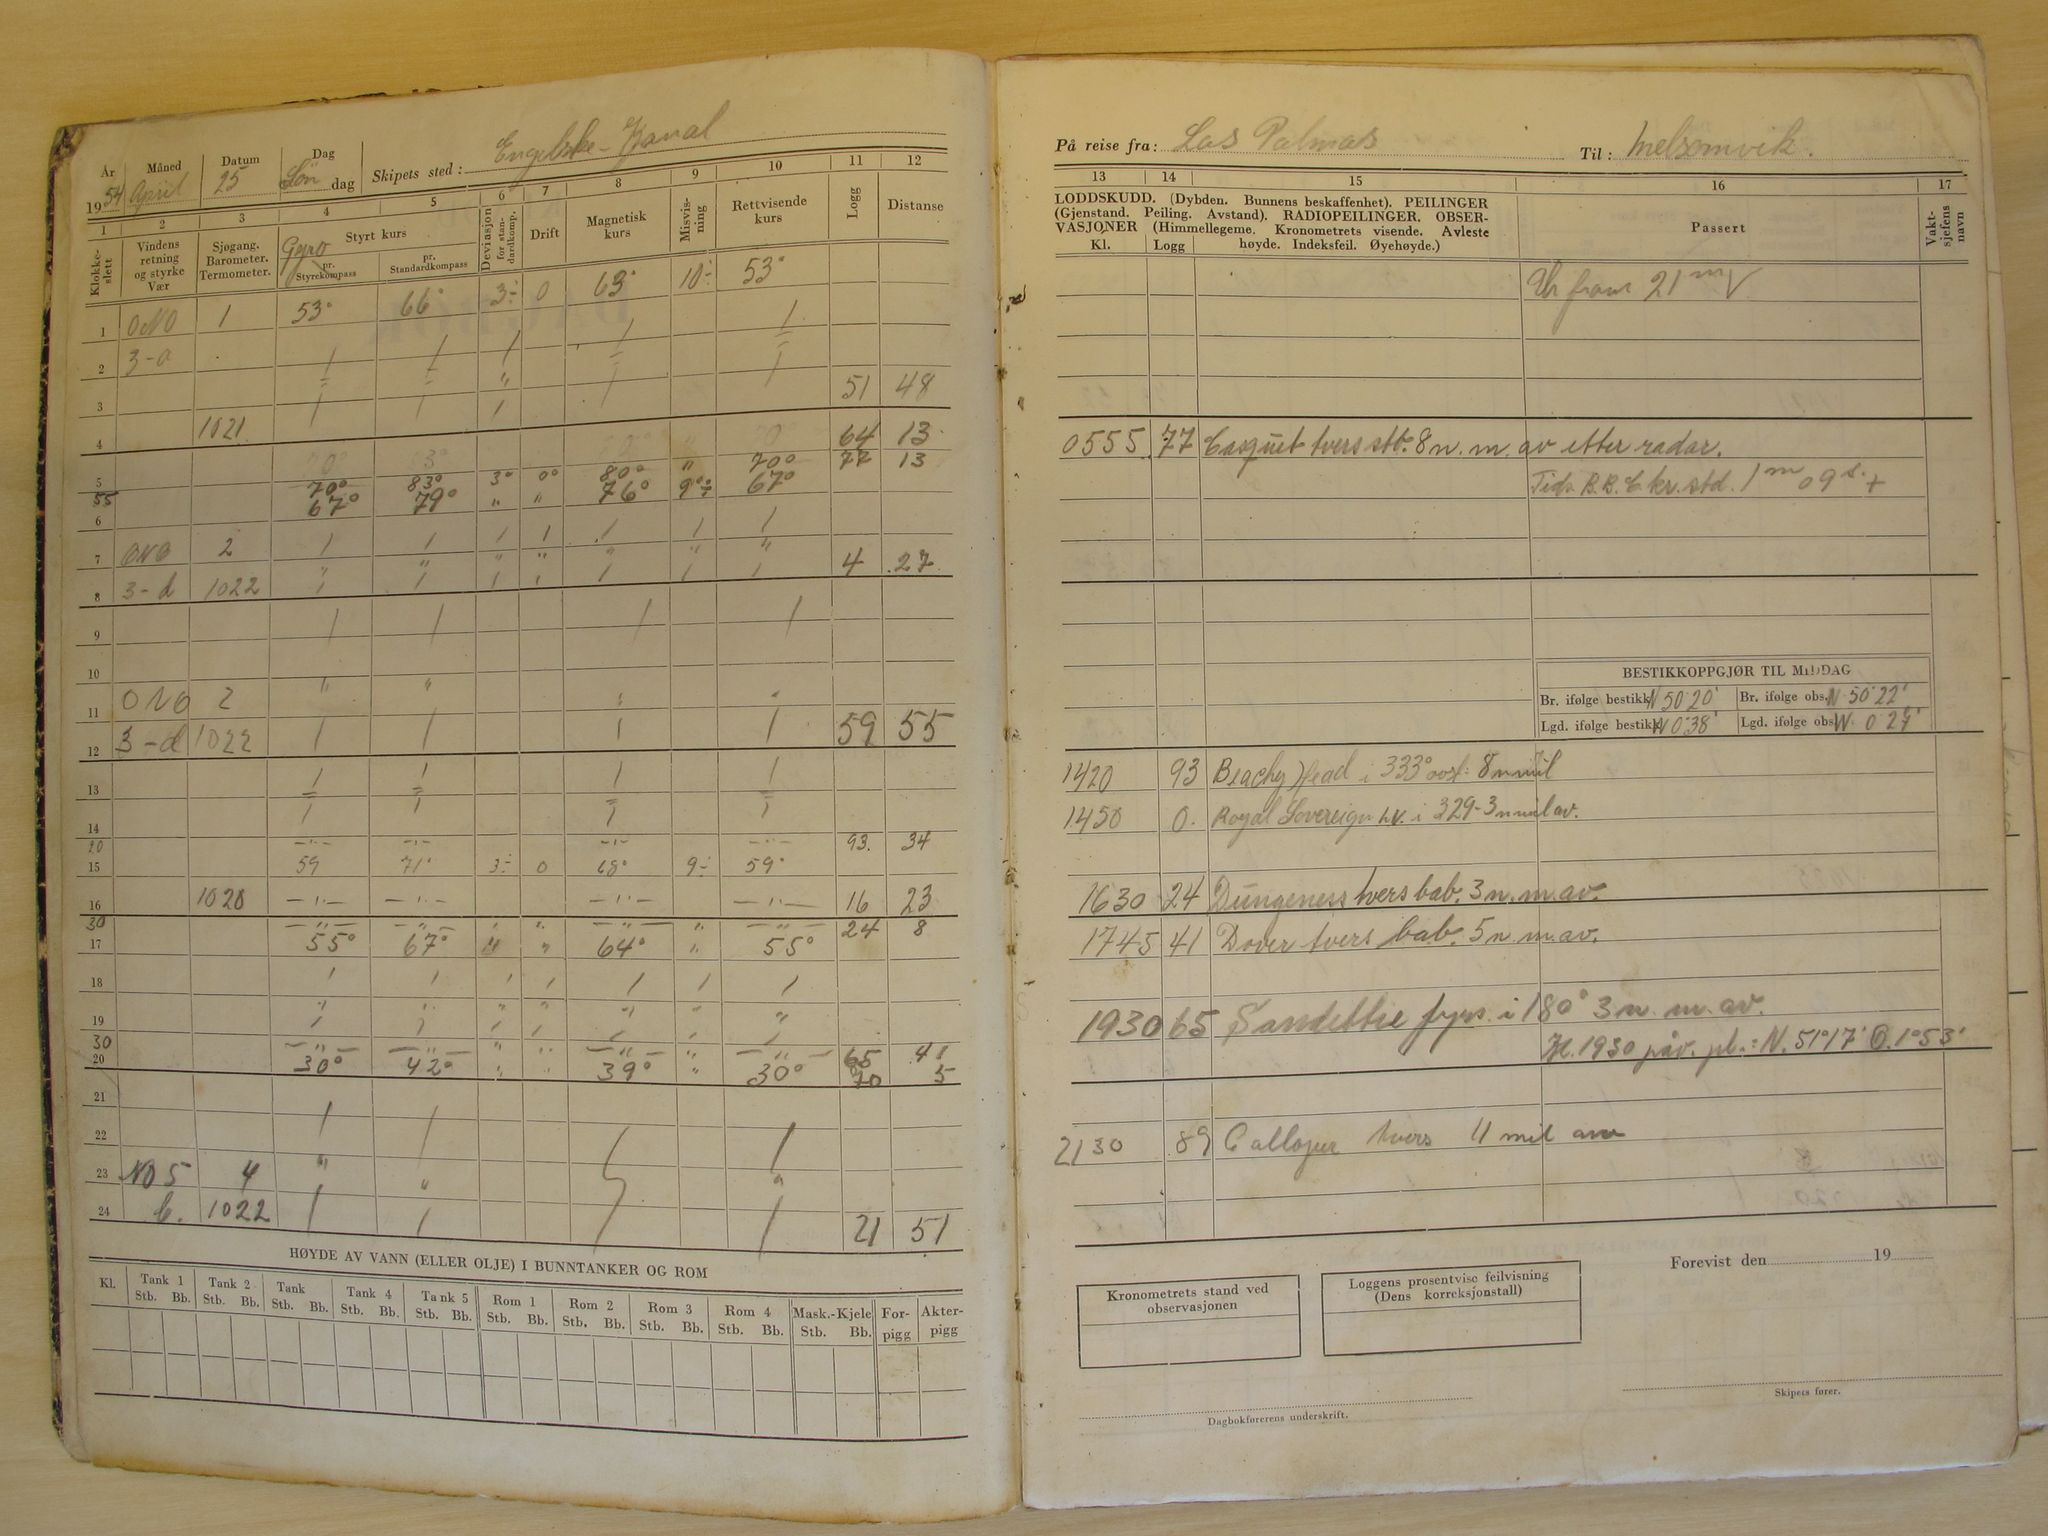 År Måned Datum Dag
1954 April 25 Søn dag Skipets sted: Engelske-Kanal
1 2 3 4 5 6 7 8 9 10 11 12
Klokkeslett
Vindens retning og styrke Vær
Sjøgang. Barometer. Termometer.
Styrt kurs
Gyro
pr. Styrekompass
pr. Standardkompass
Deviasjon for standardkomp.
Drift
Magnetisk kurs
Misvisning
Rettvisende kurs
Logg
Distanse
1 ONO 1 53° 66° 3÷ 0 63° 10÷ 53°
2 3-o
3 51 48
4 1021 64 13
5 70° 83° 3° 0° 80° " 70° 77 13
55 67° 79° " " 76° 9°÷ 67°
6
7 ONO 2
8 3-d 1022 4 27
9
10
11 ONO 2
12 3-d 1022 59 55
13
14
20 93. 34
15 59 71° 3÷ 0 68° 9÷ 59°
16 1020 —"— —"— —"— —"— 16 23
30 —"— —"— " " —"— " —"— 24 8
17 55° 67° " " 64° " 55°
18
19
30 —"— —"— " " —"— " —"— 65 41
20 30° 42° " " 39° " 30° 70 5
21
22
23 NO 5 4
24 b. 1022 21 51
HØYDE AV VANN (ELLER OLJE) I BUNNTANKER OG ROM
Kl. Tank 1 Tank 2 Tank Tank 4 Tank 5 Rom 1 Rom 2 Rom 3 Rom 4 Mask.-Kjele For-pigg Akter-pigg
Stb. Bb. Stb. Bb. Stb. Bb. Stb. Bb. Stb. Bb. Stb. Bb. Stb. Bb. Stb. Bb. Stb. Bb. Stb. Bb.
På reise fra: Las Palmas Til: Melsomvik.
13 14 15 16 17
LODDSKUDD. (Dybden. Bunnens beskaffenhet). PEILINGER
(Gjenstand. Peiling. Avstand). RADIOPEILINGER. OBSER-
VASJONER (Himmellegeme. Kronometrets visende. Avleste
Kl. Logg høyde. Indeksfeil. Øyehøyde.)
Passert
Vakt-sjefens navn
Ur fram 21 m
0555 77 Casquet tvers stb. 8 n. m. av etter radar.
Tids. B.B.C kr. std. 1m 09s. +
BESTIKKOPPGJØR TIL MIDDAG
Br. ifølge bestikk N 50°20' Br. ifølge obs. N 50°22'
Lgd. ifølge bestikk W 0°38' Lgd. ifølge obs. W 0°27'
1420 93 Beachy Head i 333° avst: 8 n mil
1450 0. Royal Sovereign i 329-3 n mil av.
1630 24 Dungeness tvers bab. 3 n. m. av.
1745 41 Dover tvers bab. 5 n. m. av.
1930 65 Sandettie fyrs. i 180° 3 n. m. av.
Kl. 1930 påv. pl.: N. 51°17' O. 1°53'
2130 89 Galloper tvers 4 mil av
Forevist den 19
Kronometrets stand ved observasjonen
Loggens prosentvise feilvisning
(Dens korreksjonstall)
Skipets fører.
Dagbokførerens underskrift.